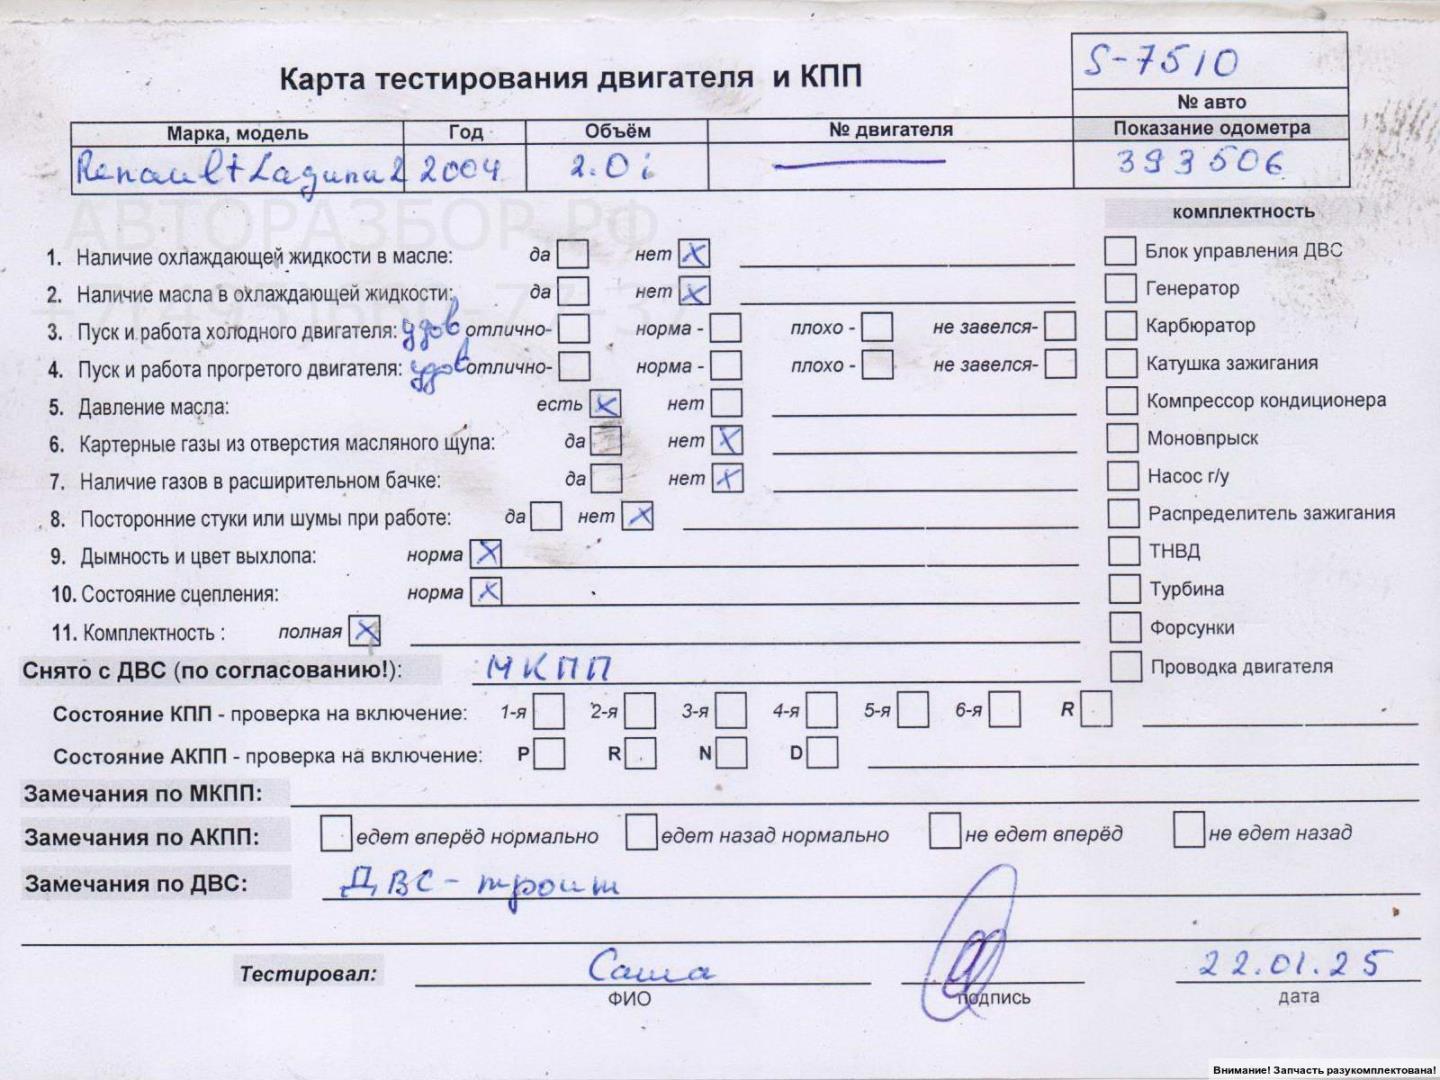 S-7510
Карта тестирования двигателя и КПП
№ авто
Марка, модель Год Объём № двигателя Показание одометра
Renault Laguna 2 2004 2.0i 393506
АВТОРАЗБОР.РФ
комплектность
1. Наличие охлаждающей жидкости в масле: да нет X Блок управления ДВС
2. Наличие масла в охлаждающей жидкости: да нет X Генератор
3. Пуск и работа холодного двигателя: удов отлично- норма - плохо - не завелся- Карбюратор
4. Пуск и работа прогретого двигателя: удов отлично- норма - плохо - не завелся- Катушка зажигания
5. Давление масла: есть X нет Компрессор кондиционера
6. Картерные газы из отверстия масляного щупа: да нет X Моновпрыск
7. Наличие газов в расширительном бачке: да нет X Насос г/у
8. Посторонние стуки или шумы при работе: да нет X Распределитель зажигания
9. Дымность и цвет выхлопа: норма X ТНВД
10. Состояние сцепления: норма X Турбина
11. Комплектность : полная X Форсунки
Снято с ДВС (по согласованию!): МКПП Проводка двигателя
Состояние КПП - проверка на включение: 1-я 2-я 3-я 4-я 5-я 6-я R
Состояние АКПП - проверка на включение: P R N D
Замечания по МКПП:
Замечания по АКПП: едет вперёд нормально едет назад нормально не едет вперёд не едет назад
Замечания по ДВС: ДВС - троит
Тестировал: Саша 22.01.25
ФИО подпись дата
Внимание! Запчасть разукомплектована!